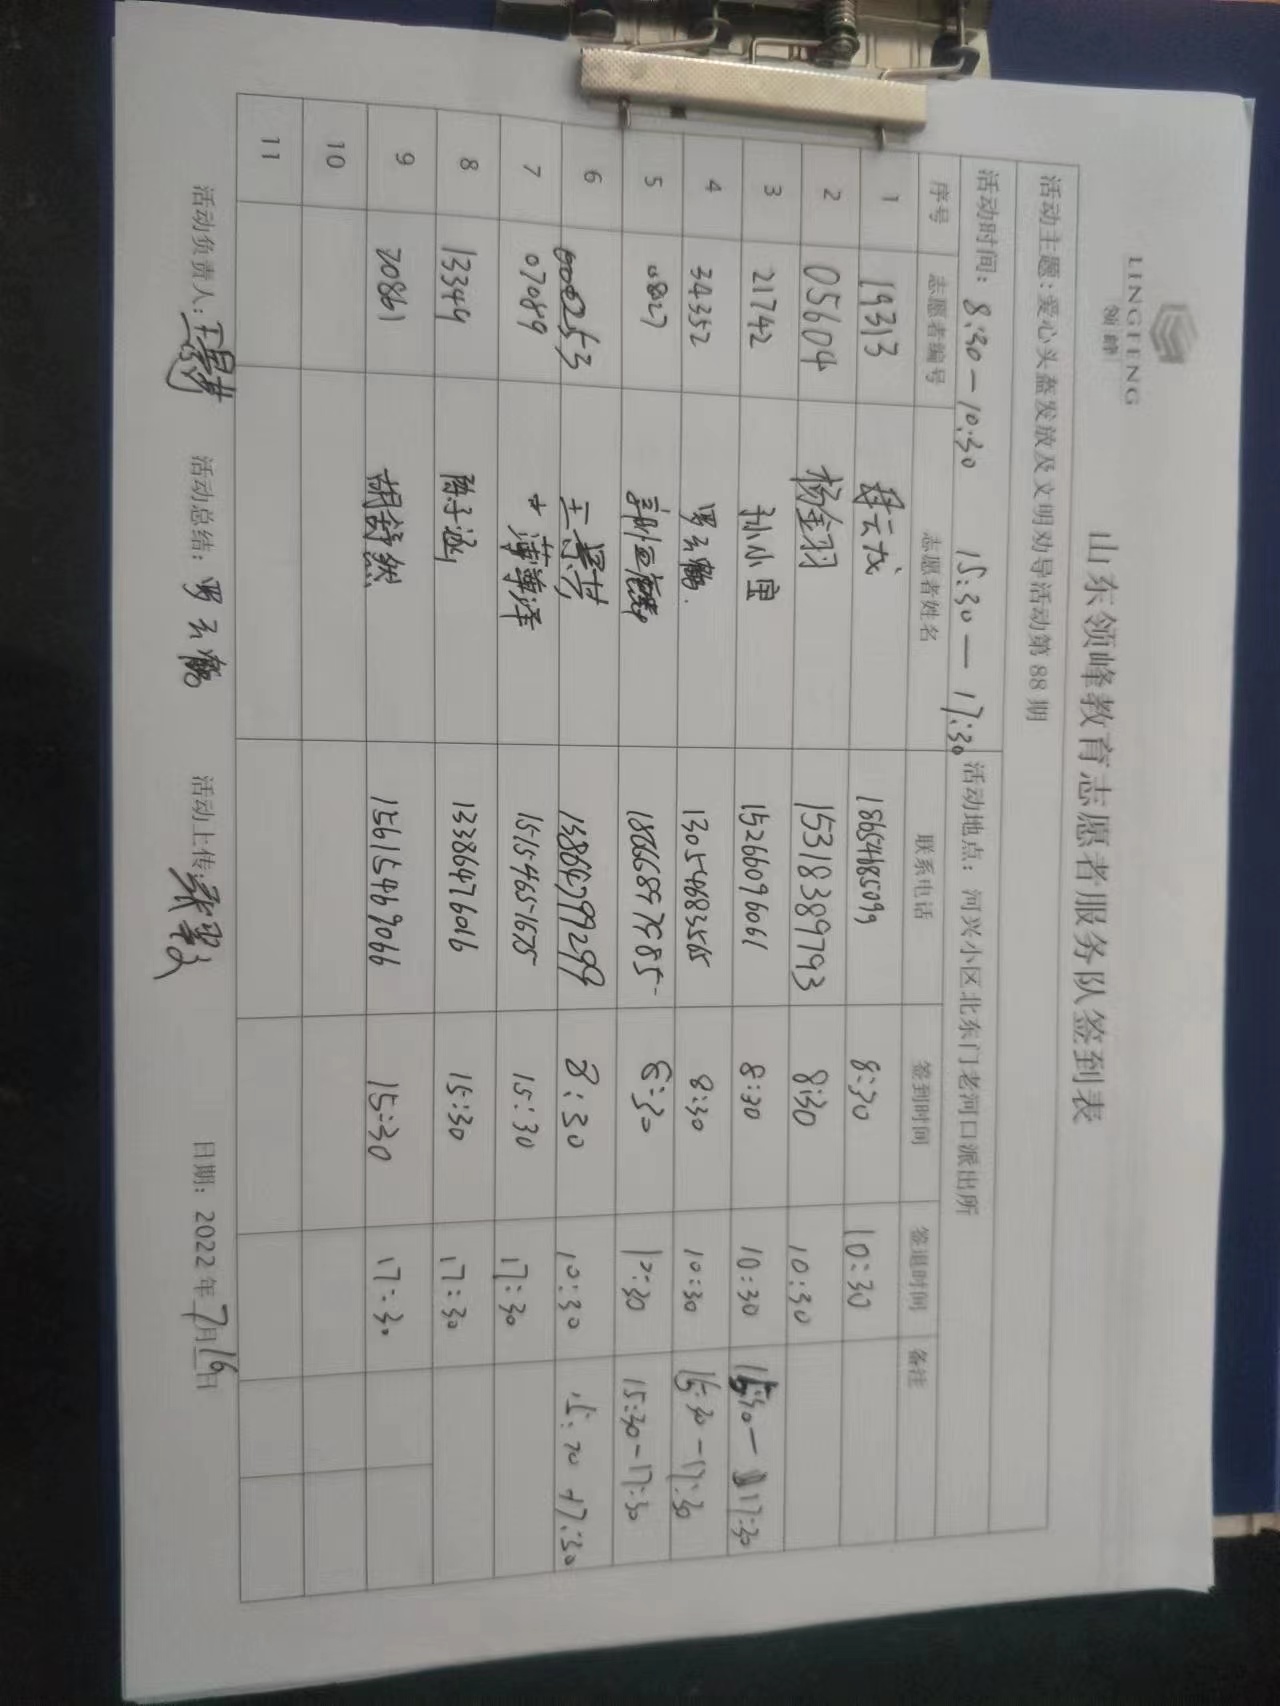 LINGFENG
领峰
山东领峰教育志愿者服务队签到表
活动主题：爱心头盔发放及文明劝导活动第 88 期
活动时间：8:30—10:30 15:30—17:30 活动地点：河兴小区北东门老河口派出所
序号 志愿者编号 志愿者姓名 联系电话 签到时间 签退时间 备注
1 19313 云龙 18654685099 8:30 10:30
2 05604 杨金羽 15318389793 8:30 10:30
3 21742 孙小宝 15266096061 8:30 10:30 15:30—17:30
4 34352 罗云鹤 13054683565 8:30 10:30 15:30-17:30
5 08027 8:30 10:30 15:30-17:30
6 王景芳 13864799299 8:30 10:30 15:30-17:30
7 07089 薄莘泽 15154651675 15:30 17:30
8 13349 陈子涵 13386476016 15:30 17:30
9 20861 胡舒然 15615469066 15:30 17:30
10
11
活动负责人：王景芳 活动总结：罗云鹤 活动上传: 日期：2022 年 7月16日